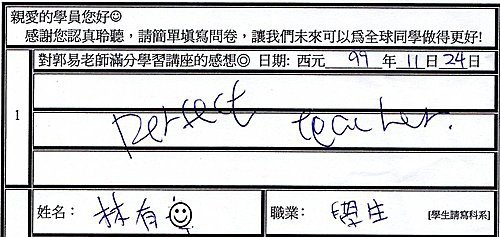 親愛的學員您好☺
感謝您認真聆聽，請簡單填寫問卷，讓我們未來可以為全球同學做得更好!
對郭易老師滿分學習講座的感想◎ 日期: 西元 99 年 11 日 24 日
1
perfect teacher.
姓名： 林有 職業： 學生 [學生請寫科系]